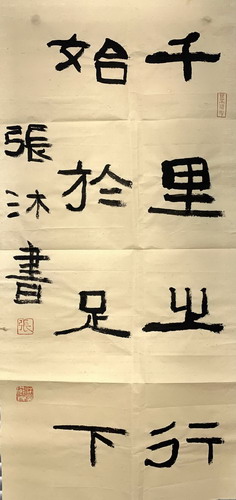 千里之行
始於足下
張沐書
張